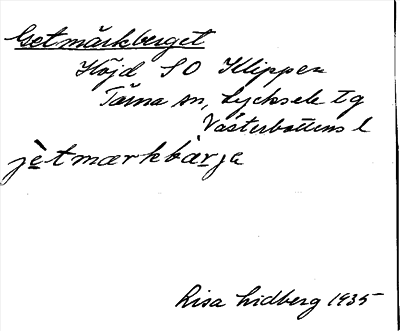 Getmärkberget
Höjd SO Klippen
Tärna sn, Lycksele tg
Västerbottens l
jètmærkbàrja
Lisa Lidberg 1935